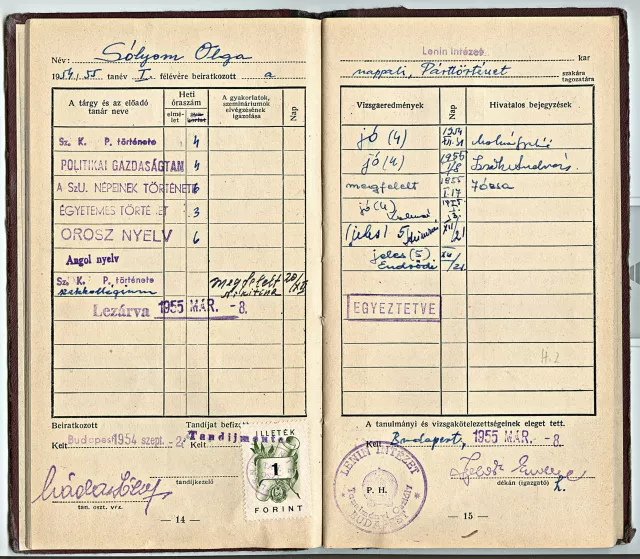 Név: Sólyom Olga
1954/55 tanév I. félévére beiratkozott a
A tárgy és az előadó tanár neve
Heti óraszám
elmélet
A gyakorlatok, szemináriumok elvégzésének igazolása
Nap
Sz. K. P. története 4
POLITIKAI GAZDASÁGTAN 4
A SzU. NÉPEINEK TÖRTÉNETE
EGYETEMES TÖRTÉ ET 3
OROSZ NYELV 6
Angol nyelv
Sz. K. P. története
szakkollégium megfelelt
Lezárva 1955 MÁR. - 8.
Beiratkozott
Tandíjat befizette
Kelt Budapest 1954 szept. Kelt Tandíjmentes
tandíjkezelő
tan. oszt. vez.
ILLETÉK
1
FORINT
— 14 —
Lenin Intézet kar
nappali, Párttörténet szakára tagozatára
Vizsgaeredmények
Nap
Hivatalos bejegyzések
jó (4) 1954 XII. 31
jó (4) 1955 1/8
megfelelt 1955 I. 17 Józsa
jó (4)
jeles 5 XII/21
jeles (5) XII/21
Endrődi
EGYEZTETVE
H. 2
A tanulmányi és vizsgakötelezettségeinek eleget tett.
Kelt Budapest, 1955 MÁR. - 8.
LENIN INTÉZET
P. H.
BUDAPEST
dékán (igazgató) h.
— 15 —